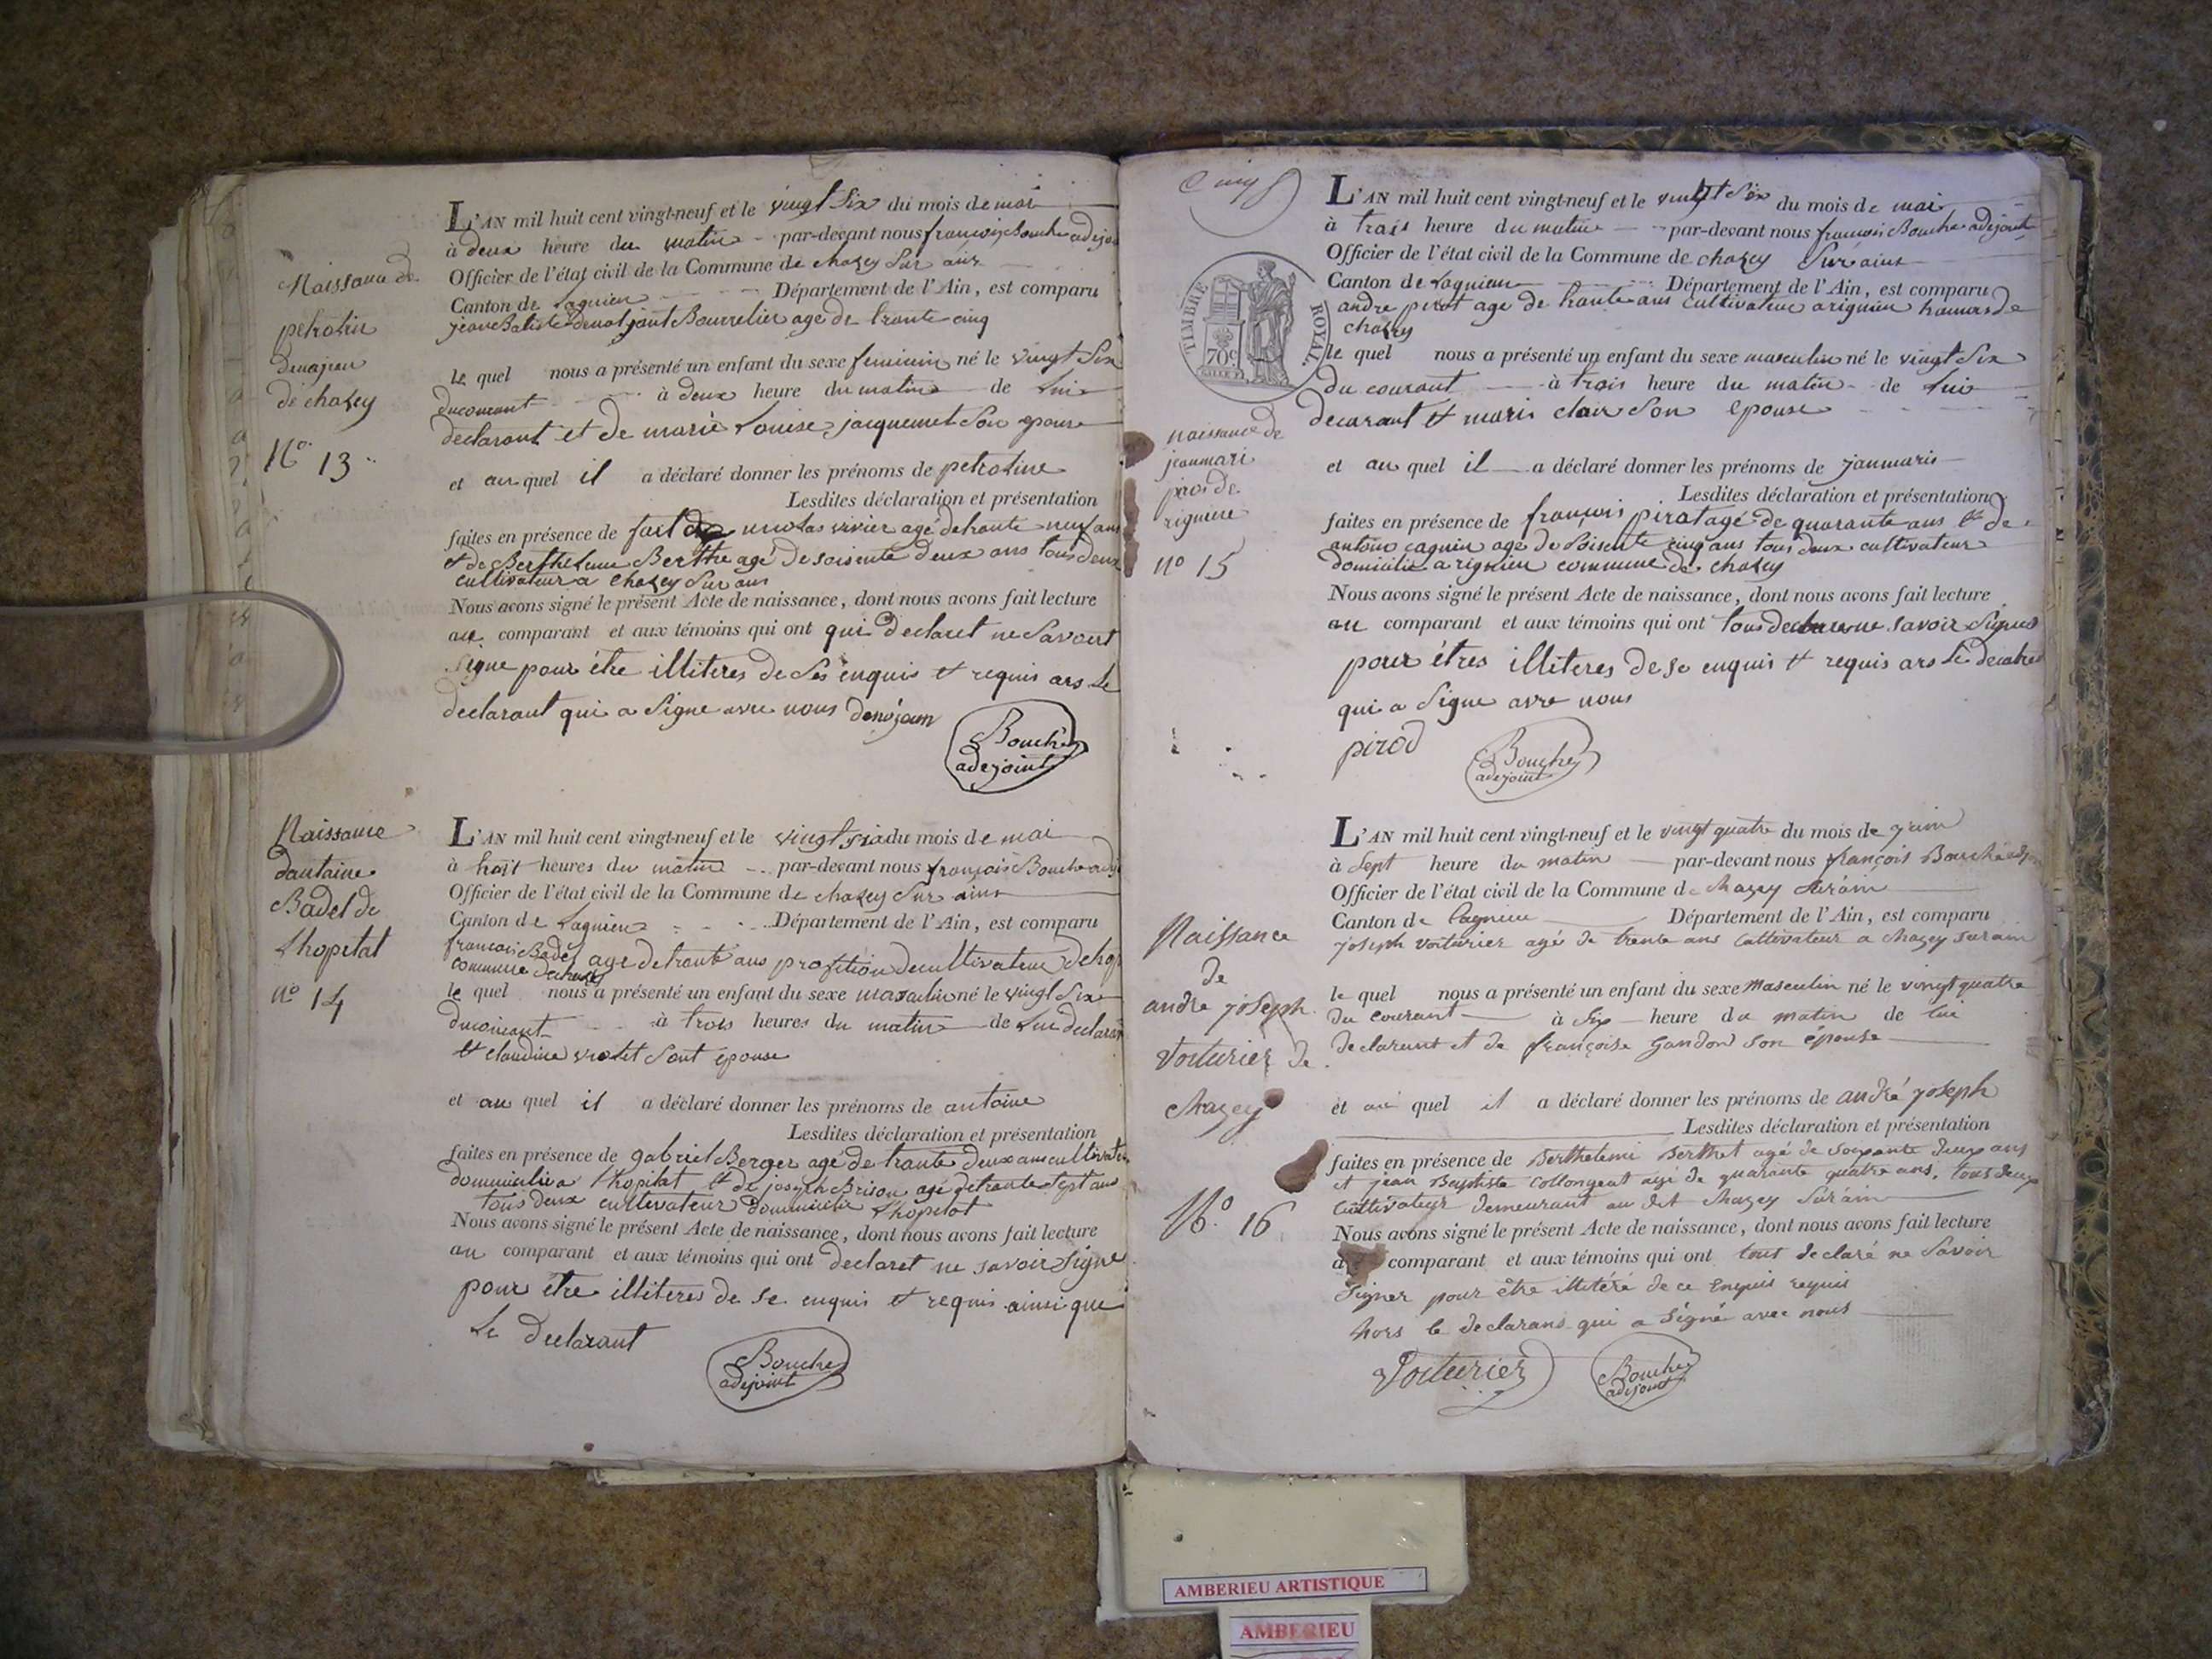 Naissance de
petroline
denojean
de chazey
N° 13
L'AN mil huit cent vingt-neuf et le vingt six du mois de mai
à deux heure du matin par-devant nous françois Bouche adejoi
Officier de l'état civil de la Commune de chazey sur ain
Canton de Lagnieu Département de l'Ain, est comparu
jean Batiste Bourrelier age de trante cinq
le quel nous a présenté un enfant du sexe feminin né le vingt six
du courant à deux heure du matin de lui
declarant et de marie Louise jacquemet son epouse
et au quel il a déclaré donner les prénoms de petroline
Lesdites déclaration et présentation
faites en présence de vivier agé de trante neuf ans
et de Berthelemi Berthe agé de soisente deux ans tous deux
cultivateur a chazey sur ain
Nous avons signé le présent Acte de naissance, dont nous avons fait lecture
au comparant et aux témoins qui ont qui declaret ne savoir
signe pour étre illiteres de ses enquis et requis ars le
declarant qui a signe avre nous denojean
Bouché
adejoint
Naissance
dantoine
Badel de
Lhopital
n° 14
L'AN mil huit cent vingt-neuf et le vingt six du mois de mai
à huit heures du matin par-devant nous françois Bouche adej
Officier de l'état civil de la Commune de chazey sur ain
Canton de Lagnieu Département de l'Ain, est comparu
francois Badel age de trante ans profition de cultivateur de hop
commune de chazey
le quel nous a présenté un enfant du sexe masculin né le vingt six
du courant à trois heures du matin de lui declaran
et claudine violet sont epouse
et au quel il a déclaré donner les prénoms de antoine
Lesdites déclaration et présentation
faites en présence de gabriel Berger agé de trante deux ans cultivateu
dommicilie a lhopital et de joseph Brison agé de trante sept ans
tous deux cultivateur dommicilie Lhopital
Nous avons signé le présent Acte de naissance, dont nous avons fait lecture
au comparant et aux témoins qui ont declaret ne savoir signe
pour etre illiteres de se enquis et requis ainsi que
Le declarant
Bouche
adejoint
TIMBRE ROYAL
70c
naissance de
jeanmari
piros de
rigniere
n° 15
L'AN mil huit cent vingt-neuf et le vingt six du mois de mai
à trois heure du matin par-devant nous francois Bouche adejoint
Officier de l'état civil de la Commune de chazey sur ain
Canton de Lagnieu Département de l'Ain, est comparu
andre pirot age de trante ans cultivateur a rignieu hamau de
chazey
le quel nous a présenté un enfant du sexe masculin né le vingt six
du courant à trois heure du matin de lui
decarant et marie clair son epouse
et au quel il a déclaré donner les prénoms de janmarie
Lesdites déclaration et présentation
faites en présence de françois pirat agé de quarante ans et de
antoine caquin age de soisente cinq ans tous deux cultivateur
domicilie a rignieu commune de chazey
Nous avons signé le présent Acte de naissance, dont nous avons fait lecture
au comparant et aux témoins qui ont tous declare ne savoir signer
pour étres illiteres de se enquis et requis ars le
qui a signe avre nous
pirod
Bouche
adejoint
Naissance
de
andré joseph
Voiturier de
chazey
N° 16
L'AN mil huit cent vingt-neuf et le vingt quatre du mois de juin
à sept heure du matin par-devant nous françois Bouché
Officier de l'état civil de la Commune de chazey surain
Canton de lagnieu Département de l'Ain, est comparu
joseph voiturier agé de trente ans cultivateur a chazey surain
le quel nous a présenté un enfant du sexe Masculin né le vingt quatre
du courant à six heure du matin de lui
declarant et de françoise gandon son épouse
et au quel il a déclaré donner les prénoms de andré joseph
Lesdites déclaration et présentation
faites en présence de Berthelemi Berthet agé de soixante deux ans
et jean Baptiste Collongeat agé de quarante quatre ans, tous deux
cultivateur demeurant au dit chazey surain
Nous avons signé le présent Acte de naissance, dont nous avons fait lecture
au comparant et aux témoins qui ont tout declaré ne savoir
signer pour être illitéré de ce enquis requis
hors le declarans qui a signé avec nous
Voiturier
Bouche
adejoint
AMBERIEU ARTISTIQUE
AMBERIEU